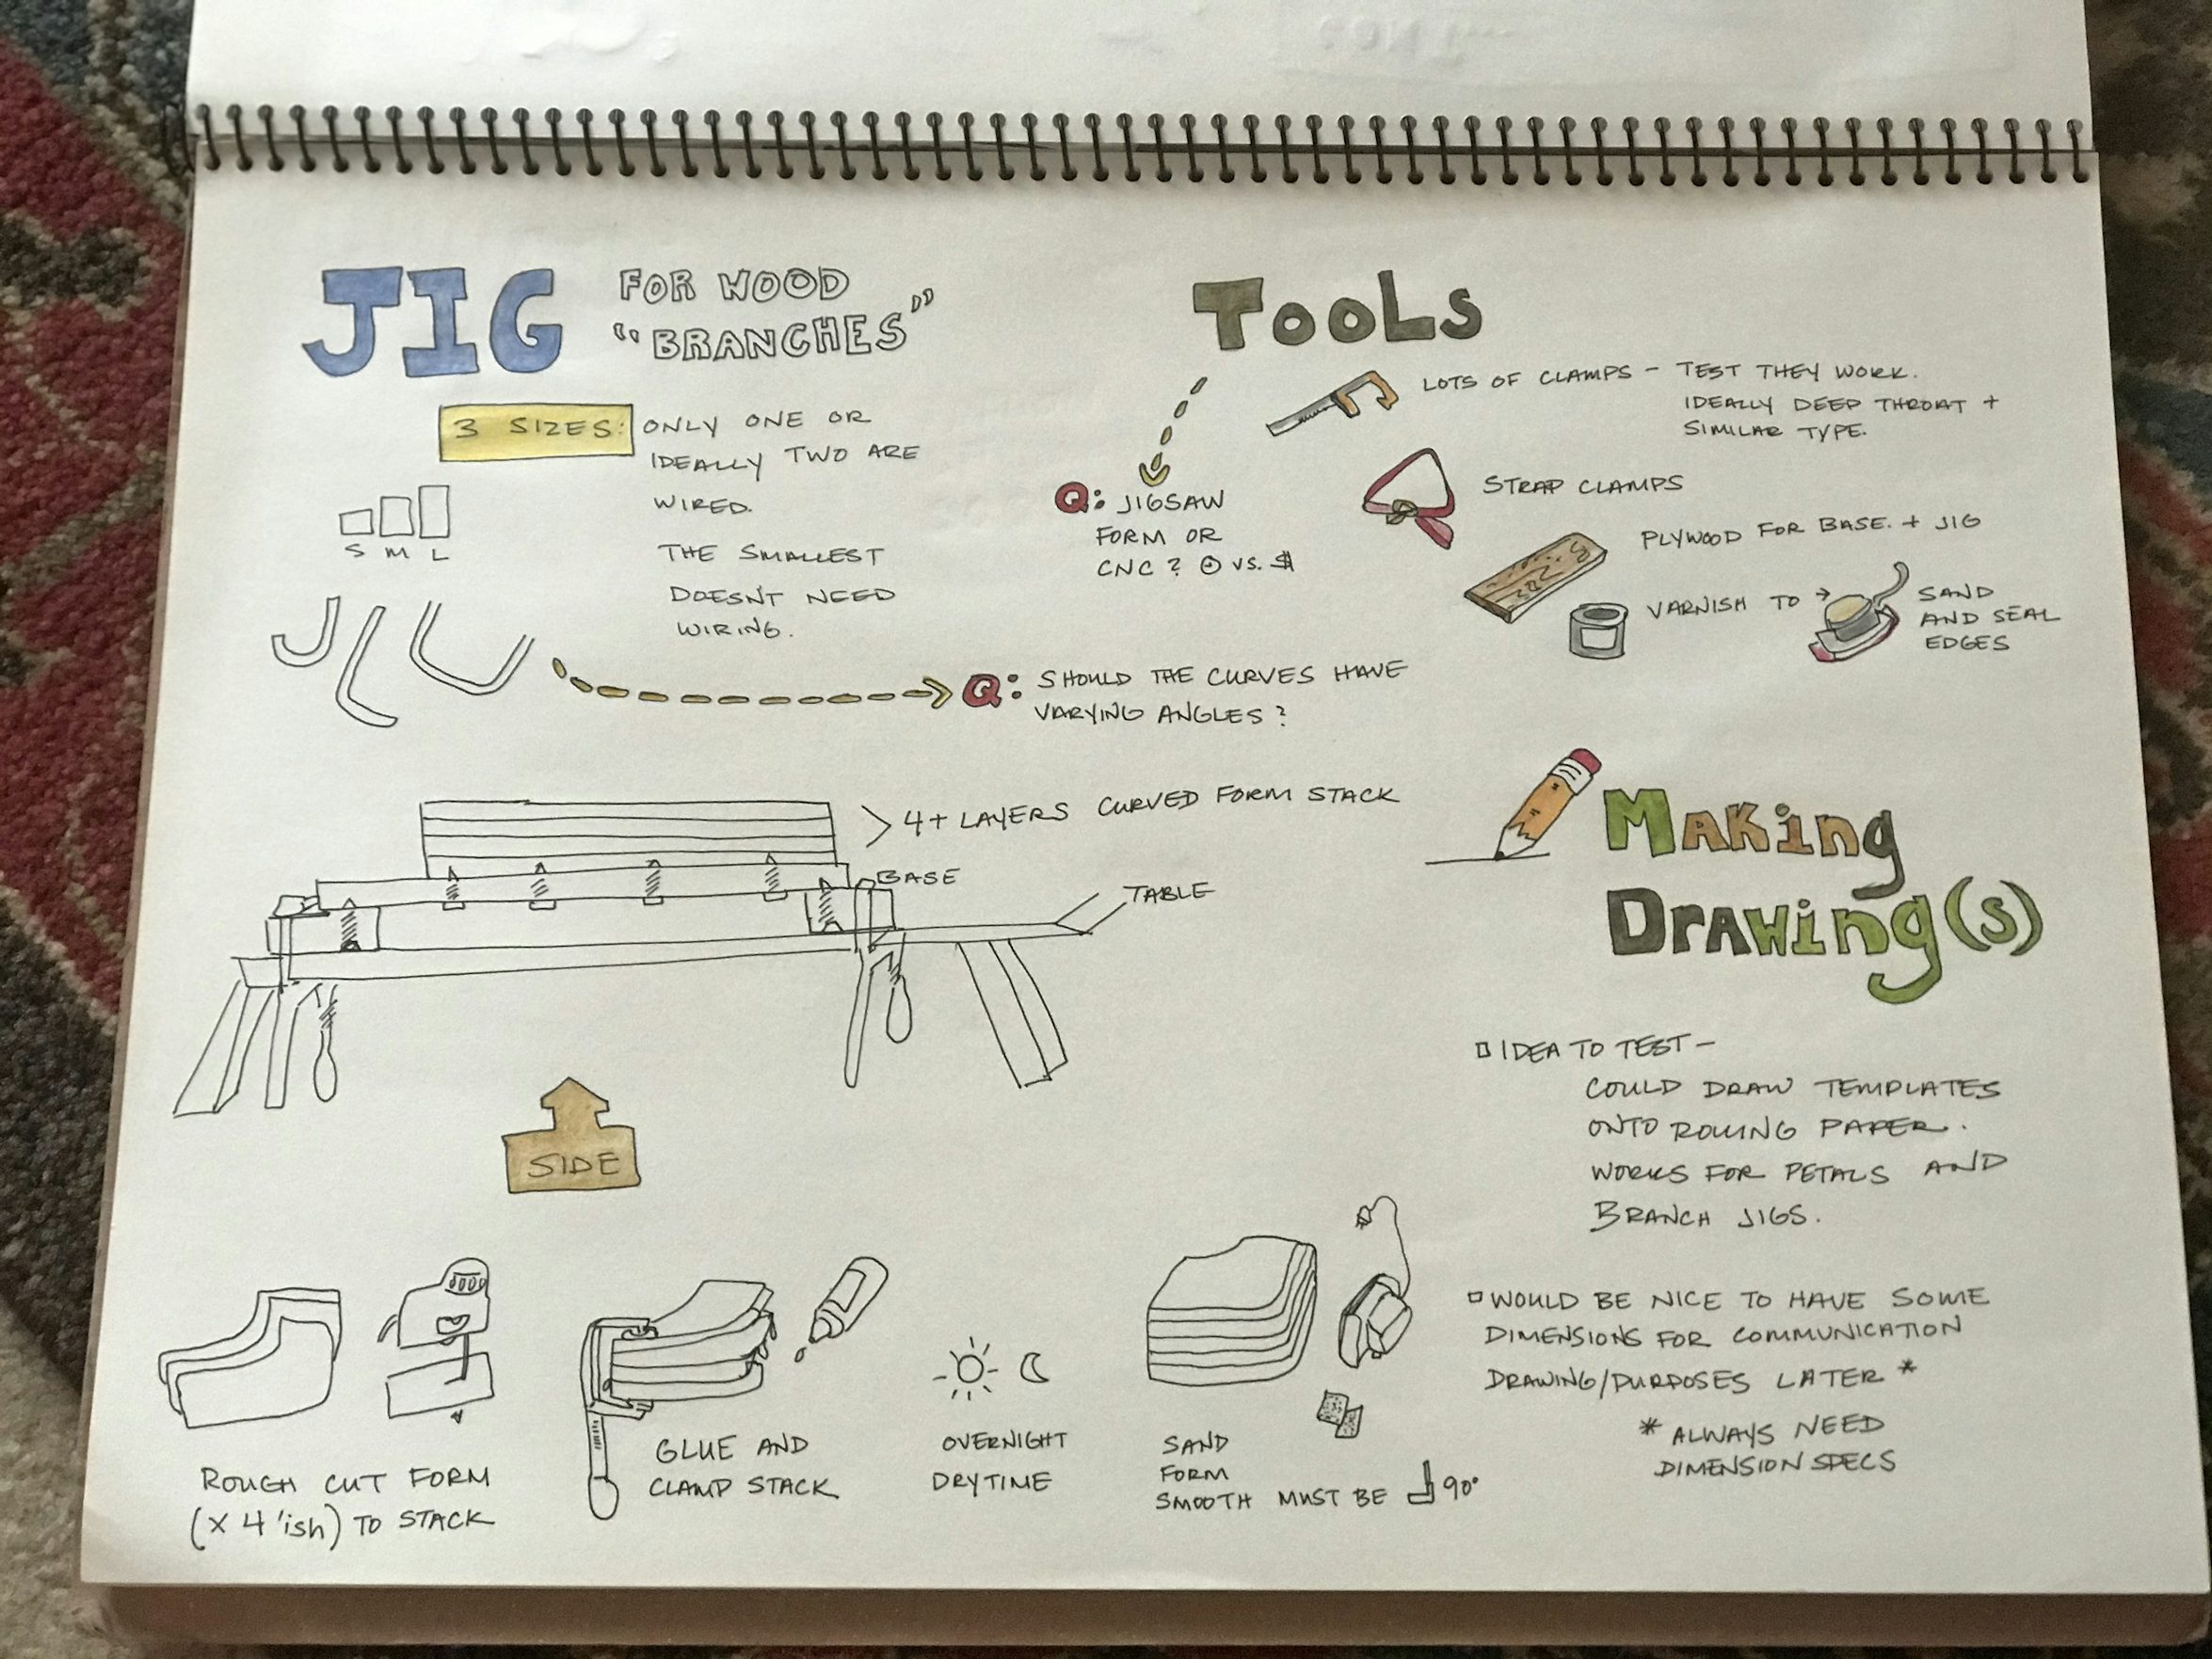 JIG
FOR WOOD
"BRANCHES"
3 SIZES:
ONLY ONE OR
IDEALLY TWO ARE
WIRED.
THE SMALLEST
DOESN'T NEED
WIRING.
S M L
Q: SHOULD THE CURVES HAVE
VARYING ANGLES?
TOOLS
LOTS OF CLAMPS - TEST THEY WORK.
IDEALLY DEEP THROAT +
SIMILAR TYPE.
Q: JIGSAW
FORM OR
CNC? VS. $
STRAP CLAMPS
PLYWOOD FOR BASE. + JIG
VARNISH TO →
SAND
AND SEAL
EDGES
> 4+ LAYERS CURVED FORM STACK
BASE
TABLE
SIDE
ROUGH CUT FORM
(X 4'ish) TO STACK
GLUE AND
CLAMP STACK
OVERNIGHT
DRYTIME
SAND
FORM
SMOOTH MUST BE 90°
MAKING
DRAWING(S)
IDEA TO TEST-
COULD DRAW TEMPLATES
ONTO ROLLING PAPER.
WORKS FOR PETALS AND
BRANCH JIGS.
WOULD BE NICE TO HAVE SOME
DIMENSIONS FOR COMMUNICATION
DRAWING/PURPOSES LATER *
* ALWAYS NEED
DIMENSION SPECS